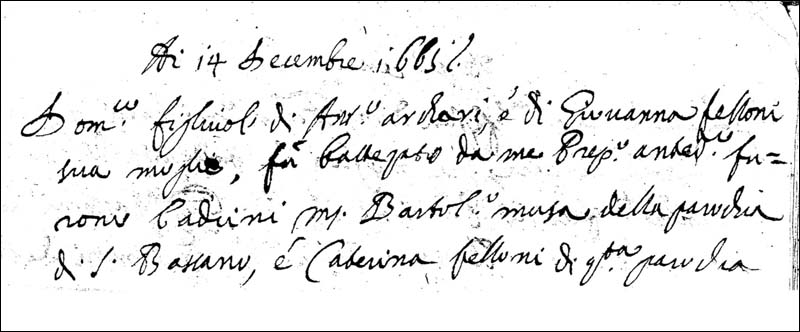 Ai 14 Decembre 1665
Dom.co figliuol di Ant.o archari, é di Giovanna felloni
sua moglie, fu battezato da me Prep.o anted.o fu=
rono Padrini m. Bartol.o musa della parochia
di S. Bassano, é Catterina felloni di q.ta parochia